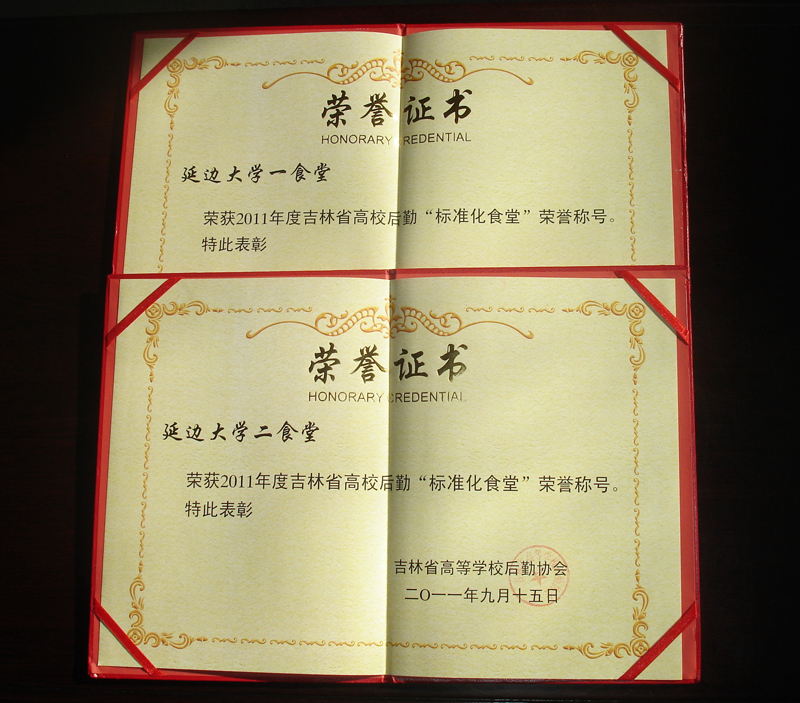 荣誉证书
HONORARY CREDENTIAL
延边大学一食堂
荣获2011年度吉林省高校后勤“标准化食堂”荣誉称号。
特此表彰
荣誉证书
HONORARY CREDENTIAL
延边大学二食堂
荣获2011年度吉林省高校后勤“标准化食堂”荣誉称号。
特此表彰
吉林省高等学校后勤协会
二O一一年九月十五日